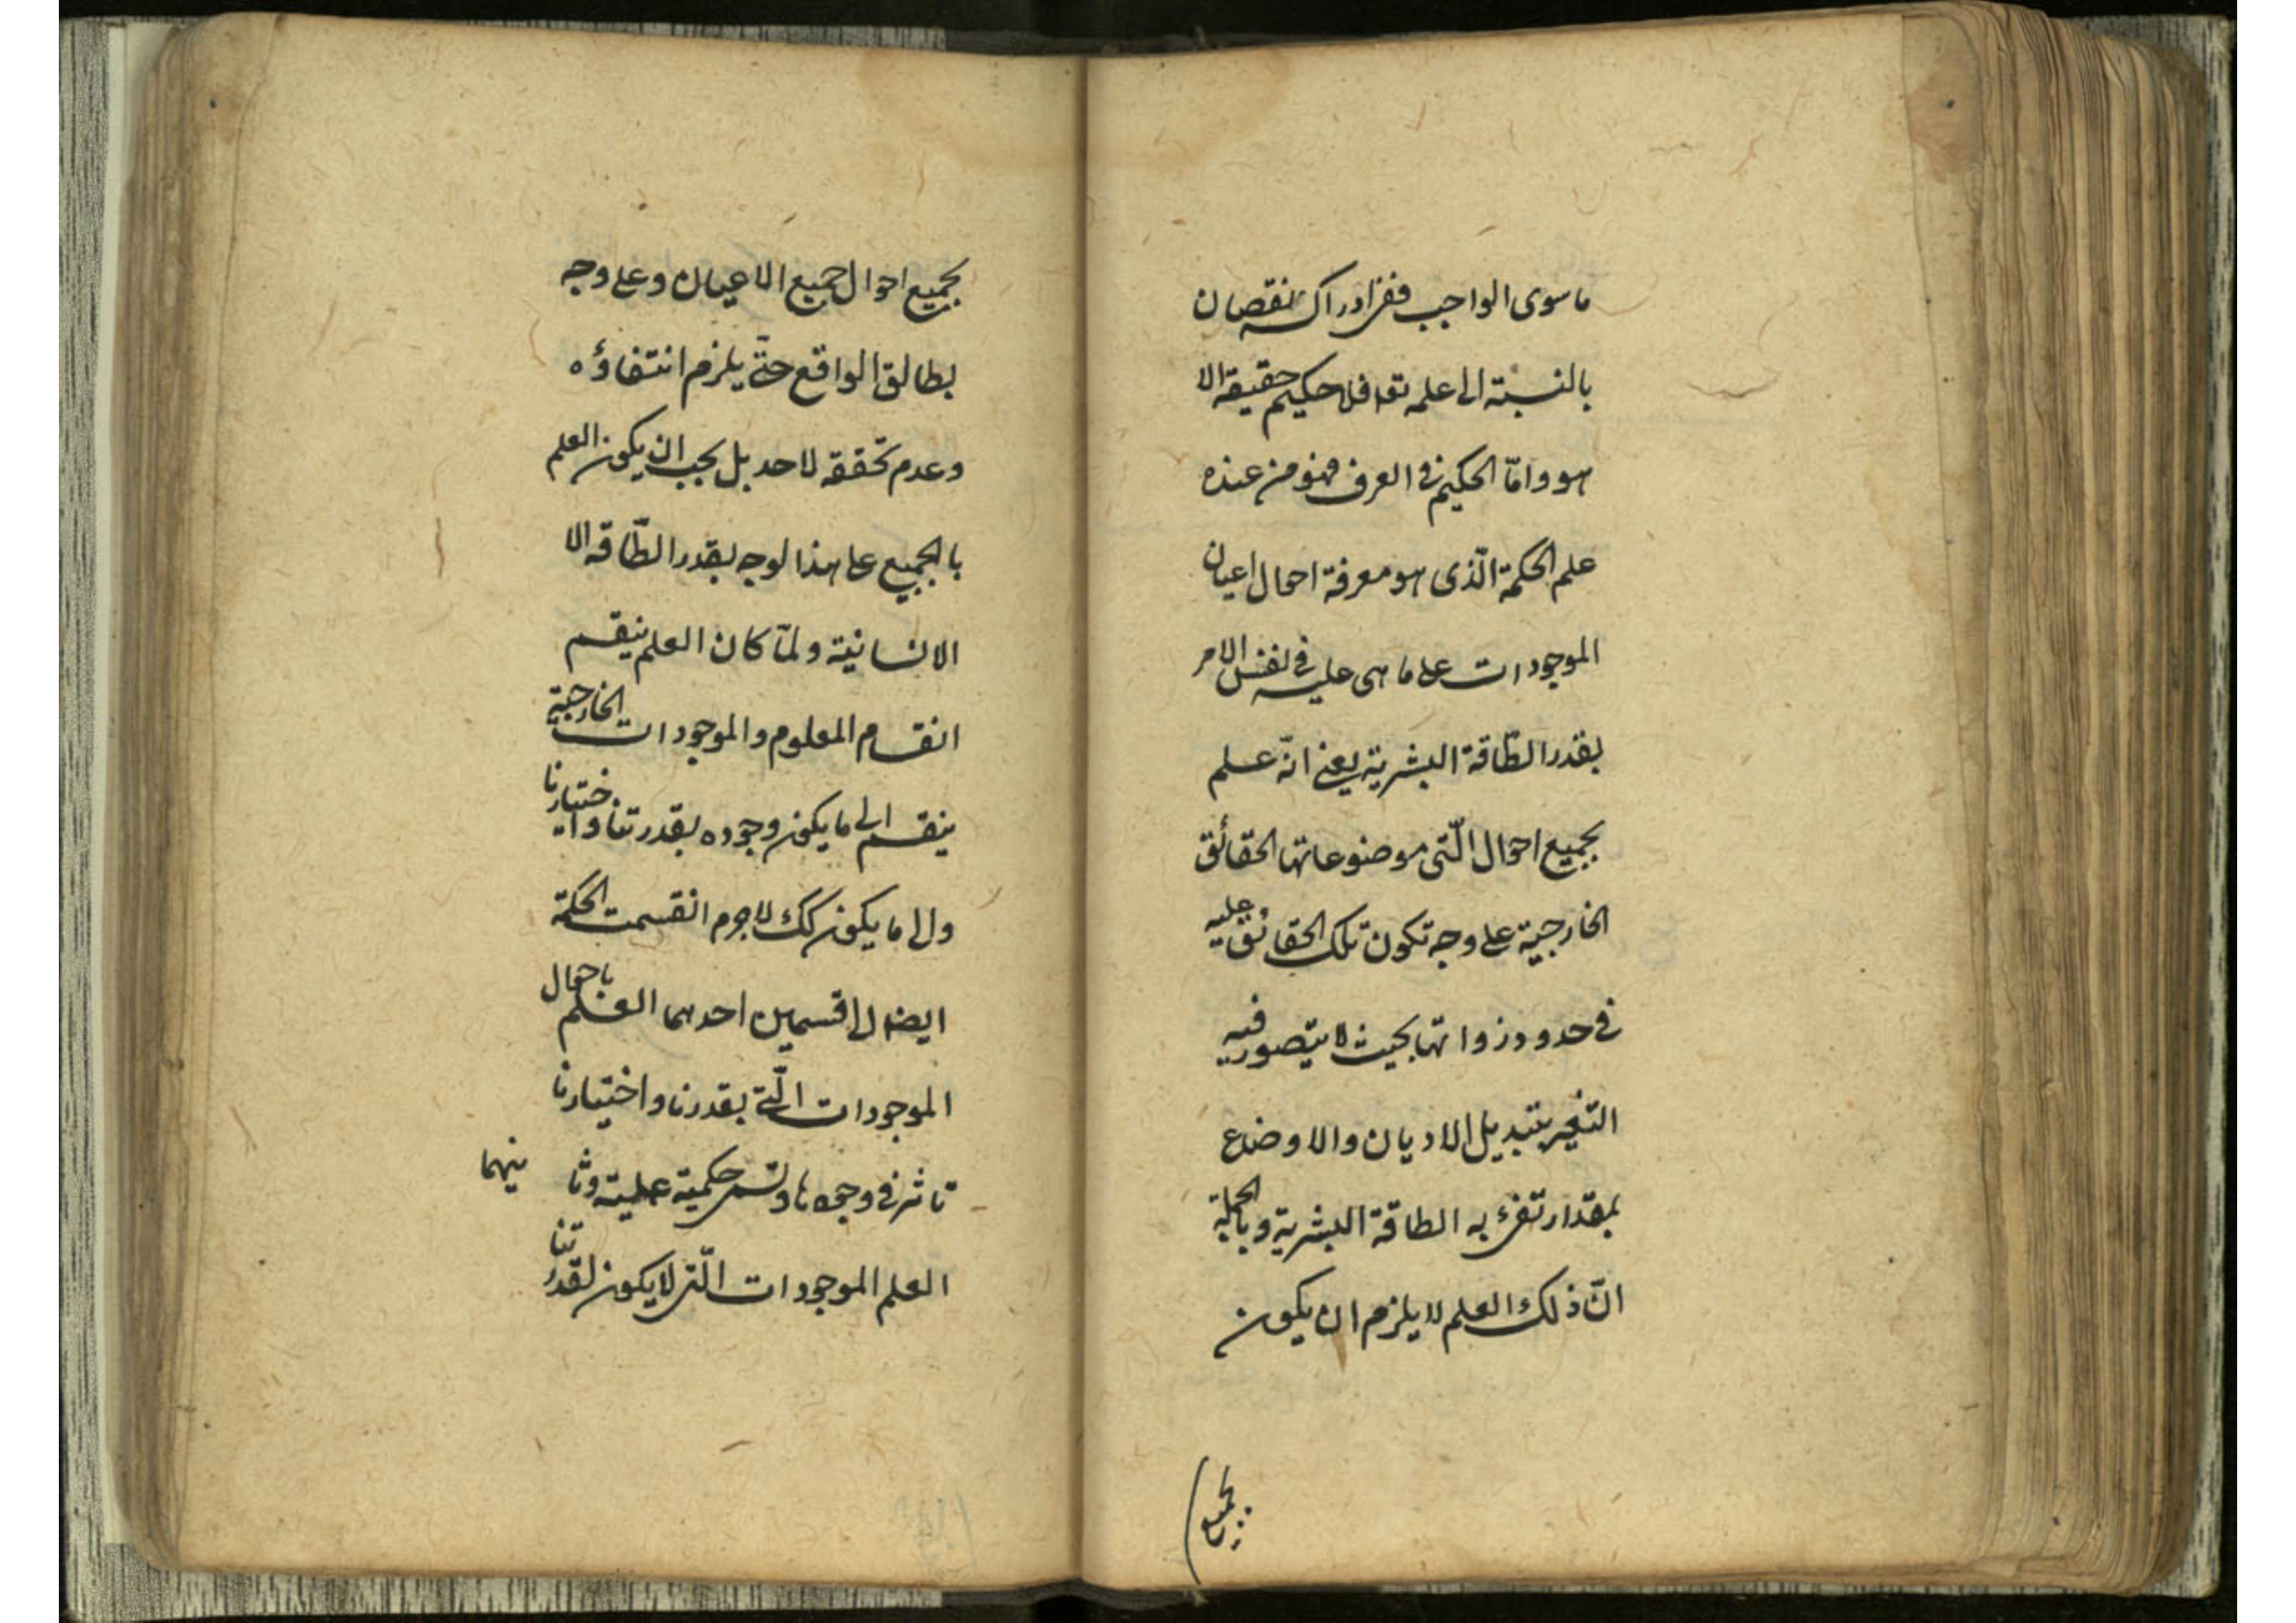 ماسوى الواجب ففى ادراكه نقصان
بالنسبة الى علمه تعا فلا حكيم حقيقة الا
هو وامّا الحكيم فى العرف فهو من عنده
علم الحكمة الّذى هو معرفة احوال اعيان
الموجودات على ما هى عليه فى نفس الامر
بقدر الطّاقة البشرية يعنى انّه علم
بجميع احوال الّتى موضوعاتها الحقائق
الخارجية على وجه تكون تلك الحقائق عليه
فى حدود ذواتها بحيث لا يتصور فيه
التغير بتبديل الاديان والاوضاع
بمقدار تفى به الطاقة البشرية وبالجملة
انّ ذلك العلم لا يلزم ان يكون
بجميع
بجميع احوال جميع الاعيان وعلى وجه
يطابق الواقع حتّى يلزم انتفاؤه
وعدم تحققه لاحد بل يجب ان يكون العلم
بالجميع على هذا لوجه بقدر الطّاقه الا
الانسانية ولمّا كان العلم ينقسم
انقسام المعلوم والموجودات الخارجية
ينقسم الى ما يكون وجوده بقدرتنا واختيارنا
والى ما يكون كك لاجرم انقسمت الحكمة
ايضا الى قسمين احدهما العلم باحوال
الموجودات الّتى بقدرنا واختيارنا
تاثير فى وجودها وتسمى حكمية عملية وثا
نيهما
العلم الموجودات الّتى لا يكون لقدرتنا